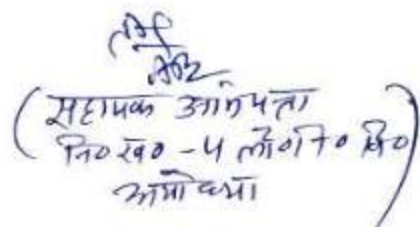 (सहायक अभियन्ता
नि० ख० -4 लो० नि० वि०
अयोध्या)